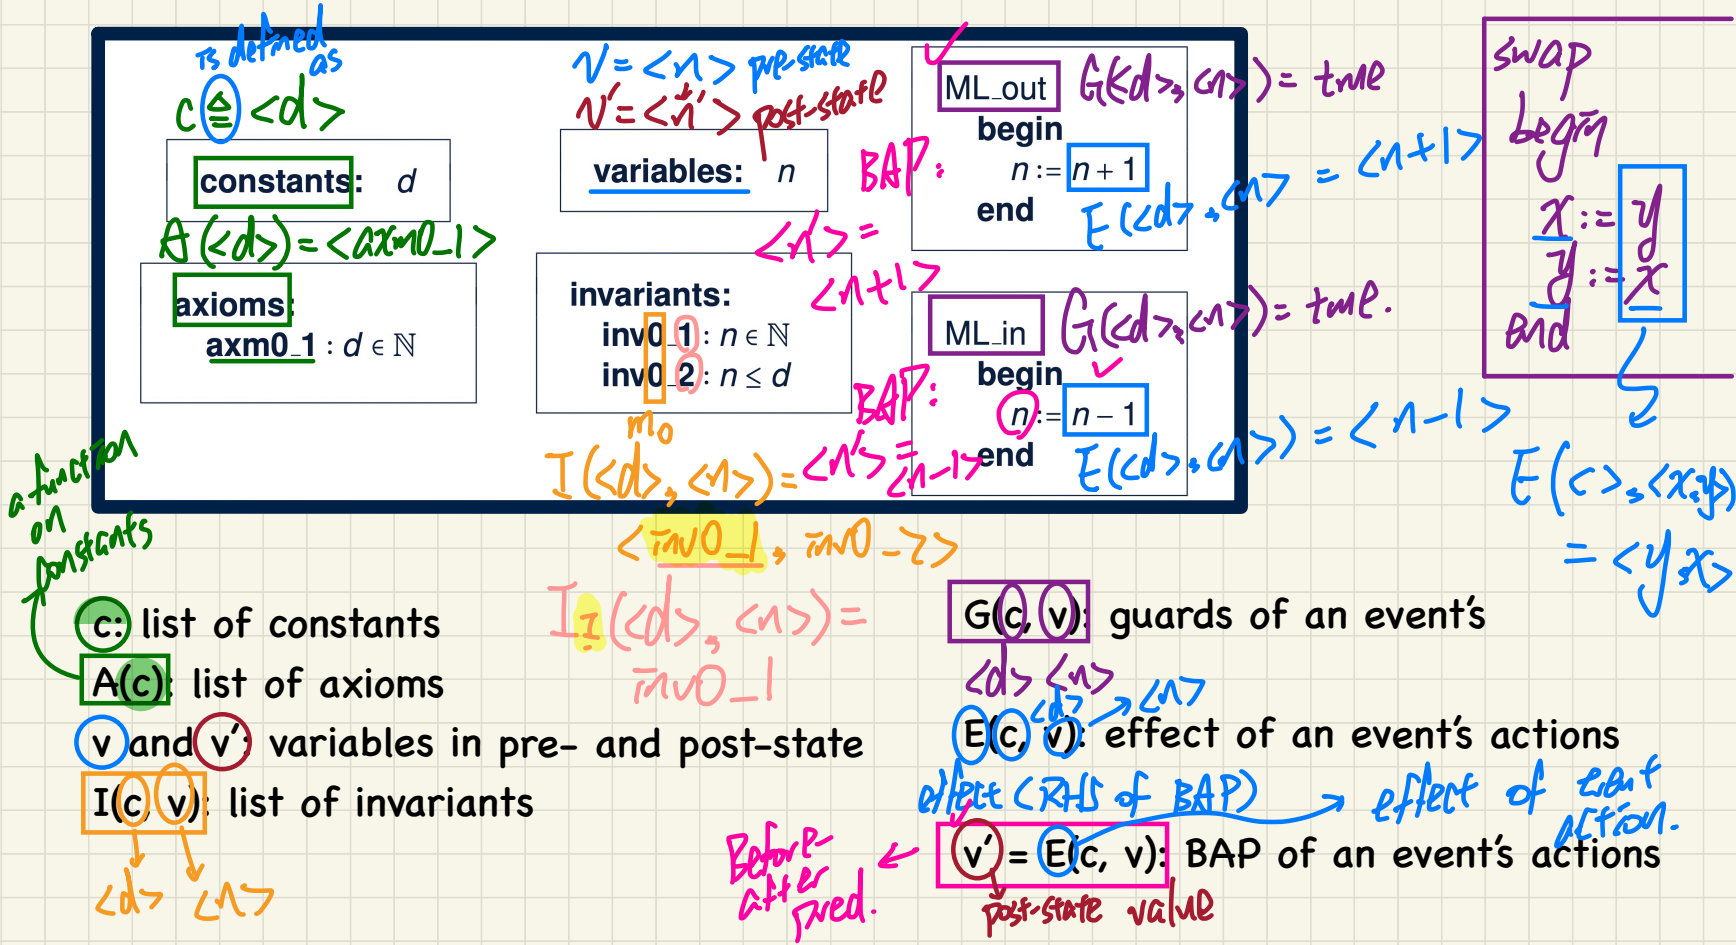 is defined as
c ≙ <d>
constants: d
A(<d>) = <axm0_1>
axioms:
axm0_1 : d ∈ ℕ
a function on constants
v = <n> pre-state
v' = <n'> post-state
variables: n
invariants:
inv0_1 : n ∈ ℕ
inv0_2 : n ≤ d
m0
I(<d>, <n>) =
<inv0_1, inv0_2>
I1(<d>, <n>) =
inv0_1
ML_out
G(<d>, <n>) = true
begin
BAP:
n := n + 1
end
E(<d>, <n>) = <n+1>
<n'> =
<n+1>
ML_in
G(<d>, <n>) = true.
begin
BAP:
n := n − 1
end
E(<d>, <n>) = <n-1>
<n'> =
<n-1>
swap
begin
x := y
y := x
end
E(c>, <x,y>)
= <y,x>
c: list of constants
A(c): list of axioms
v and v': variables in pre- and post-state
I(c, v): list of invariants
<d> <n>
G(c, v): guards of an event's
<d> <n>
<d> <n>
E(c, v): effect of an event's actions
effect (RHS of BAP)
effect of event action.
v' = E(c, v): BAP of an event's actions
Before-after pred.
post-state value